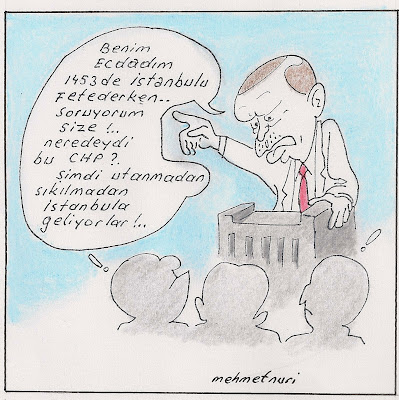 Benim
Ecdadım
1453 de istanbulu
Fetederken..
Soruyorum
size!..
neredeydi
bu CHP?
Şimdi utanmadan
sıkılmadan
istanbula
geliyorlar!..
!
!
mehmetnuri